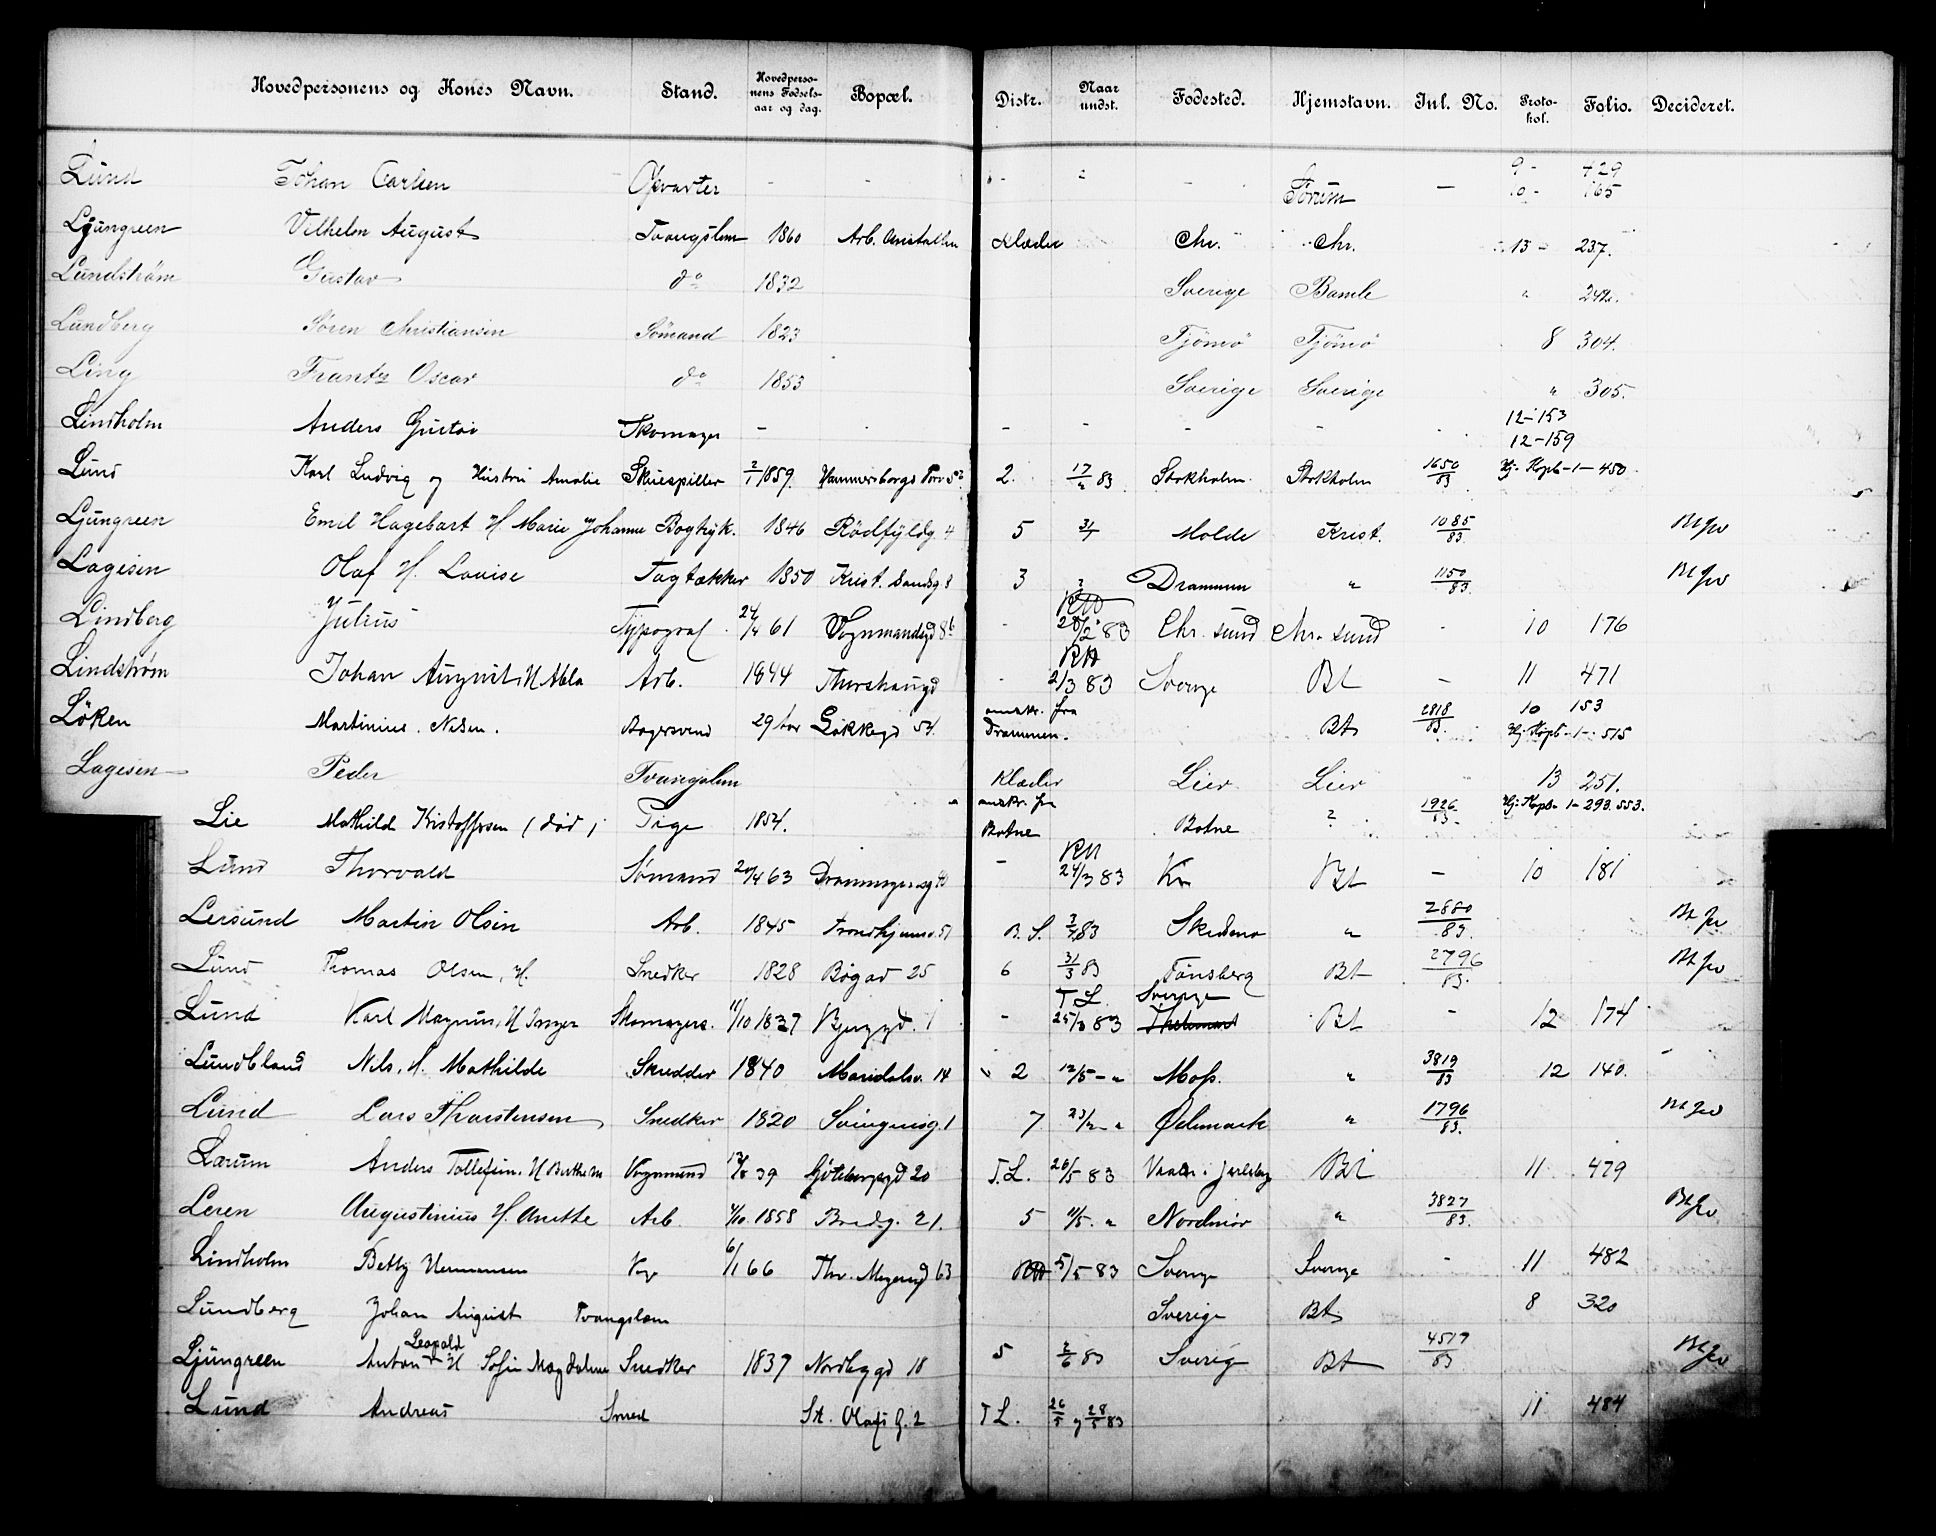 Hovedpersonens og Kones Navn. Stand. Hovedpersonens Fødselsaar og dag. Bopæl. Distr. Naar undst. Fødested. Hjemstavn. Inl. No. Protokol. Folio. Decideret.
Lund Johan Carlsen Opvarter - - - - Sørum - 9 - 429 10 - 165
Ljungreen Vilhelm August Tvangslem 1860 Arb. Anstalten Klæder Chr. Chr. 13 - 237.
Lundstrøm Gustav do 1832 Sverige Bamle " 242.
Lundberg Søren Christiansen Sömand 1823 Tjömö Tjömö 8 304.
Ling Frantz Oscar do 1853 Sverige Sverige " 305.
Lindholm Anders Gustav Skomager - - - - - - 12-153 12-159
Lund Karl Ludvig og Hustru Amalie Skuespiller 2/1 1859. Hammersborgs Torv 5 2. 17/2 83 Stokholm Stokholm 1650/83 Hj. Kopb-1-450.
Ljungreen Emil Hagebart H. Marie Johanne Bogtryk. 1846 Rødfyldg. 4 5 31/1 Molde Krist. 1085/83 Bt Jev
Lagesen Olaf H. Lovise Tagtækker 1850 Krist. Sandsg 8 3 2 Drammen " 1150/83 Bt Jev
Lindberg Julius Typograf 24/4 61 Vognmandsgd 8 b - RM 28/2 83 Chr. sund Chr. sund - 10 176
Lindstrøm Johan August, H Abla Arb. 1844 Thorshaugd - RM 2/3 83 Sverige Bt - 11 471
Löken Martinius Nilsen. Bagersvend 29 aar Løkkegd 54. anskr. fra Drammen. Bt 2818/83. 10 153 Hj. Kopb-1-515
Lagesen Peder Tvangslem Klæder Lier Lier 13 251.
Lie Mathild Kristoffersen (død) Pige 1854. anskr. fra Botne Botne ? 1926/83 Hj. Kopb-1-293.553.
Lund Thorvald Sømand 20/4 63 - RM 24/3 83 Kr Bt - 10 181
Lersund Martin Olsen Arb. 1845 Trondhjemsv. 51 B. S. 2/4 83 Skedsmo " 2880/83. Bt Jev
Lund Thomas Olsen, H. Snedker 1828 Bøgad 25 6 31/3 83 Tönsberg Bt 2796/83. Bt Jev
Lund Karl Magnus, H Inger Skomagers. 11/10 1837 1 - T L. 25/3 83 Sverige Bt - 12 174
Lundblad Nils, H. Mathilde Skredder 1840 Maridalsv. 14 2 12/5 - " Moss. " 3819/83 12 140.
Lund Lars Thorstensen Snedker 1820 Svingensg. 1 7 23/2 - " " 1796/83. Bt Jev
Larum Anders Tollefsen, H Berthe M Vognmand 12/8 39 Göteborgsgd 20 T. L. 26/5 83 Vaaler i Jarlsberg Bt 11 479
Leren Augustinius H. Anette Arb. 4/10. 1858 Bredg. 21. 5 11/5. " Nordmör " 3827/83. Bt Jev
Lindholm Betty Hermansen 6/1 66 Thv. Meyersgd 63 RM 5/5 83 Sverige Sverige - 11 482
Lundberg Johan August Tvangslem Sverige Bt 8 320
Ljungreen Anton Leopold H Sofie Magdalene Snedker 1837 Nordbygd 18 5 2/6 83 Sverig Bt 4517/83 Bt Jev
Lund Andreas Smed St. Olafs G. 2 T L. 26/5 og 28/5 83 11 484